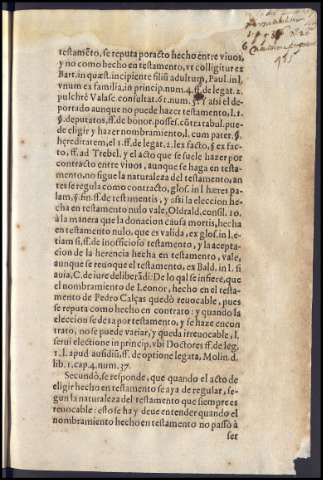 testamẽto, se reputa por acto hecho entre viuos,
y no como hecho en testamento, vt colligitur ex
Bart. in quæst. incipiente filiũ adultum, Paul. in l.
vnum ex familia, in princip. num. 4. ff. de legat. 2.
pulchrè Valasc. consultat. 61. num. y assi el de
portado aunque no puede hazer testamento, l. 1.
§. deputatos, ff. de bonor. posses. cõtra tabul. pue-
de eligir y hazer nombramiento, l. cum pater. §.
hereditatem, el 1. ff. de legat. 2. lex facto, § ex fac-
to. ff. ad Trebel. y el acto que se suele hazer por
contracto entre viuos, aunque se haga en testa-
mento, no sigue la naturaleza del testamento, an
tes se regula como contracto, glos. in l. hæres pa-
lam, §. fin. ff. de testamentis, y assi la eleccion he-
cha en testamento nulo vale, Oldrald. consil. 10.
à la manera que la donacion causa mortis, hecha
en testamento nulo, que es valida, ex glos. in l. e-
tiam si. ff. de inofficioso testamento, y la acepta-
cion de la herencia hecha en testamento, vale,
aunque se reuoque el testamento, ex Bald. in l. si
auia, C. de iure deliberãdi: De lo qal se infiere, que
el nombramiento de Leonor, hecho en el testa-
mento de Pedro Calças quedò reuocable, pues
se reputa como hecho en contrato: y quando la
eleccion se dexa por testamento, y se haze en con
trato, no se puede variar, y queda irreuocable, l.
serui electione in princip. vbi Doctores ff. de leg.
1. l. apud aufidiũ. ff. de optione legata, Molin. d.
lib. 1. cap. 4. num. 37.
Secundò, se responde, que quando el acto de
eligir hecho en testamento se aya de regular, se-
gun la naturaleza del testamento que siempre es
reuocable: esto se ha y deue entender quando el
nombramiento hecho en testamento no passò à
ser